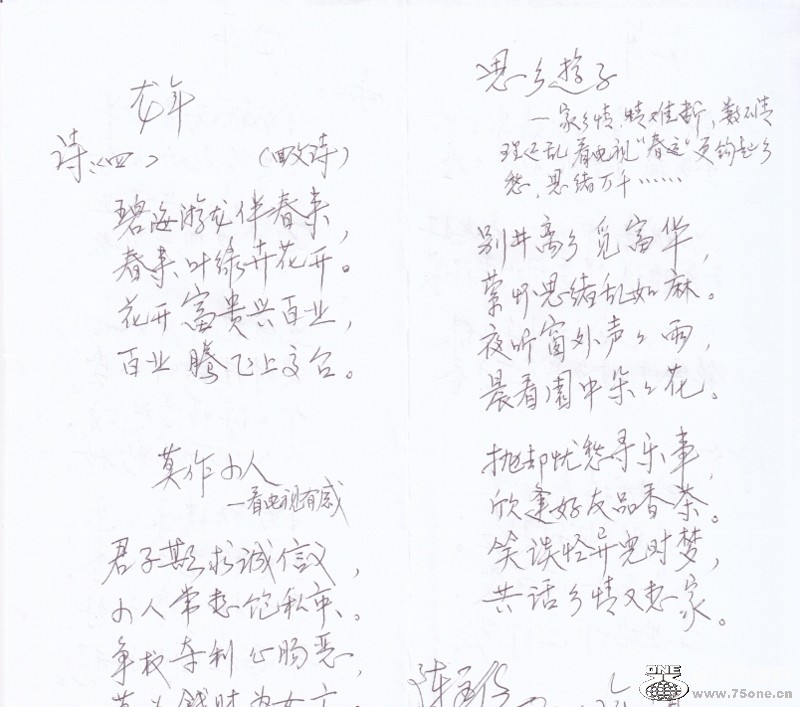 龙年
诗〈四〉 （四政诗）
碧海游龙伴春来，
春来叶绿卉花开。
花开富贵兴百业，
百业腾飞上高台。
莫作小人
—看电视有感
君子斯求诚信义，
小人常想饱私衷。
争权夺利心肠恶，
思乡游子
—家乡情，情难断，数不清
理还乱，看电视“春运”更钩起乡
愁，思绪万千……
别井离乡觅富华，
萦怀思绪乱如麻。
夜听窗外声々雨，
晨看园中朵々花。
抛却忧愁寻乐事，
欣逢好友品香茶。
笑谈怪异儿时梦，
共话乡情又想家。
陈
ONE
www.75one.cn